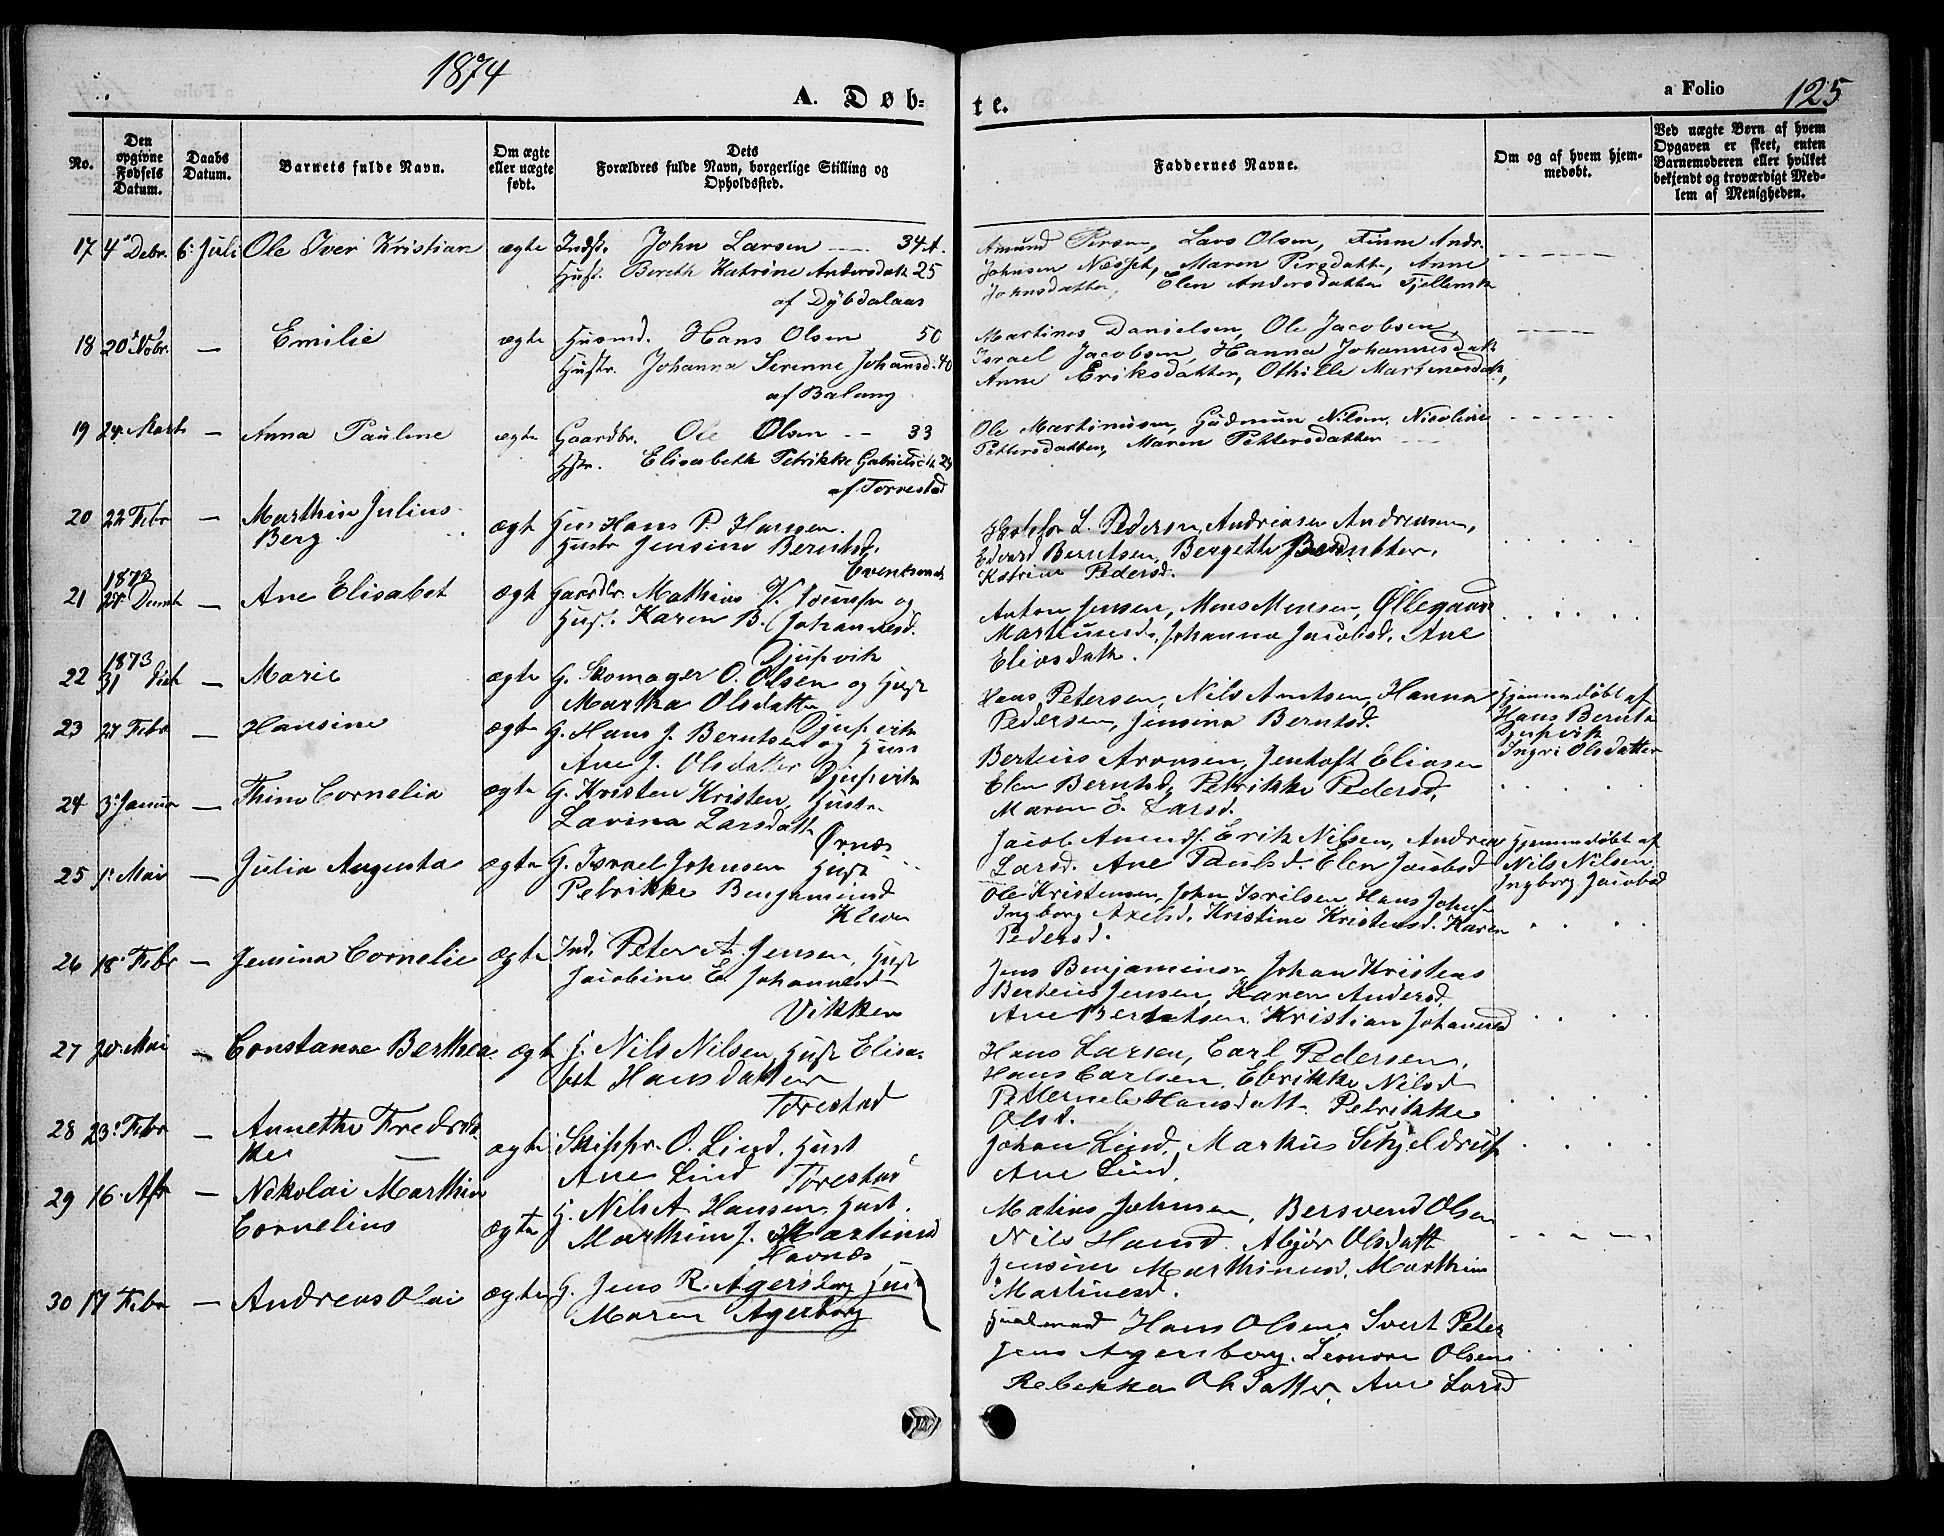 1874
A. Døb-
te.
a Folio 125
No.
Den opgivne Fødsels Datum.
Daabs Datum.
Barnets fulde Navn.
Om ægte eller uægte født.
Dets Forældres fulde Navn, borgerlige Stilling og Opholdssted.
Faddernes Navne.
Om og af hvem hjemmedøbt.
Ved uægte Børn af hvem Opgaven er skeet, enten Barnemoderen eller hvilket bekjendt og troværdigt Medlem af Menigheden.
17 4 Debr. 6. Juli Ole Iver Kristian ægte Indst. John Larsen 34 A.
Hust. Bereth Katrine Andersdatt 25
af Dybdalaas
Amund Persen, Lars Olsen, Finne Andr.
Johnsen Næsset, Maren Persdatt, Anne
Johnsdatter, Elen Andersdatter
18 20 Nobr. — Emilie ægte Husmd. Hans Olsen 50
Hustr. Johanna Serenne Johansd. 40
af Balang
Martines Danielsen, Ole Jacobsen,
Israel Jacobsen, Hanna Johannesdatt
Anne Eriksdatter, Othille Martinesdatt,
19 24 Marts — Anna Pauline ægte Gaardbr. Ole Olsen 33
Hstr. Elisabeth Petrikke Gabrielsdt. 29
af Torrestad
Ole Martinusen, Gudmun Nilsen, Nicoline
Pettersdatter, Maren Pettersdatter
20 22 Febr — Marthin Julius
Berg ægt Hans P. Hansen
Hustr Jensine Berntsd.
Evenskmark
L. Pedersen, Andreasen Andreasen,
Edvard Berntsen, Bergette
Katrine Pedersd.
21 1873 — Ane Elisabet ægt Gaardbr. Mathias og
Hust. Karen B. Johannesd.
Djupvik
Anton Jensen, Mons Monsen, Øllegaard
Martinusd. Johanna Jacobsd. Ane
Eliasdatt.
22 1873
31 — Marie ægte G. Skomager O. Olsen og Hust
Martha Olsdatter
Djupvik
Hans Petersen, Nils Arntsen, Hanna
Pedersen, Jensina Berntsd.
Hjemmedøbt af
Hans Bernts
Djupvik
Ingri Olsdatter
23 27 Febr — Hansine ægte G. Hans J. Berntsen og Hust
Ane J. Olsdatter Djupvik
Berteus Aronsen, Jentoft Eliasen
Elen Berntsd, Petrikke Pedersd,
Maren E. Larsd.
24 3 Janua — Thine Cornelia ægte G. Kristen Kristen, Hustr
Lavina Larsdatt
Ørnæs
Jacob Amunds. Erik Nilsen, Andrea
Larsd. Ane Paulsd. Elen Jacobsd
Hjemmedøbt af
Nils Nilsen,
Ingborg Jacobsd
25 1 Mai — Julia Augusta ægte G. Israel Johnsen Hust
Petrikke Benjaminsd
Kleven
Ole Kristensen, John Isrilsen, Hans Johns
Ingborg Axelsd. Kristine Kristensd. Karen
Pedersd.
26 18 Febr — Jensina Cornelie ægte Ind. Peter A. Jensen, Hust
Jacobine E. Johannesd
Vikken
Jens Benjaminsen, Johan Kristens
Berteus Jensen, Karen Andersd,
Ane Berntsen, Kristian Johannesd
27 20 Mai — Constanse Berthea ægt G. Nils Nilsen, Hust Elisa-
bet Hansdatter
Torestad
Hans Larsen, Carl Pedersen,
Hans Carlsen, Ebrikke Nilsd
Petternele Hansdatt. Petrikke
Olsd.
28 23 Febr — Annethe Fredrik-
ke ægte Skippr. O. Lind, Hust
Ane Lind Torestad
Johan Lind, Markus Schjeldrup
Ane Lind
29 16 Apr — Nikolai Marthin
Cornelius ægte G. Nils A Hansen, Hust.
Marthine J. Martinsd
Havnæs
Matias Johnsen, Bersvend Olsen
Nils Hansd. Abjør Olsdatt
Jensine Marthinusd. Marthin
Martinesd.
30 17 Febr — Andreas Olai ægte G. Jens R. Agersborg Hust
Maren Agerborg
Hans Olsen, Svert Peter
Jens Agersborg, Leonore Olsen
Rebekka Ols Datter, Ane Larsd